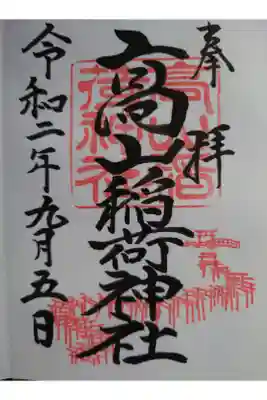 奉拝
高山稲荷神社
令和二年九月五日